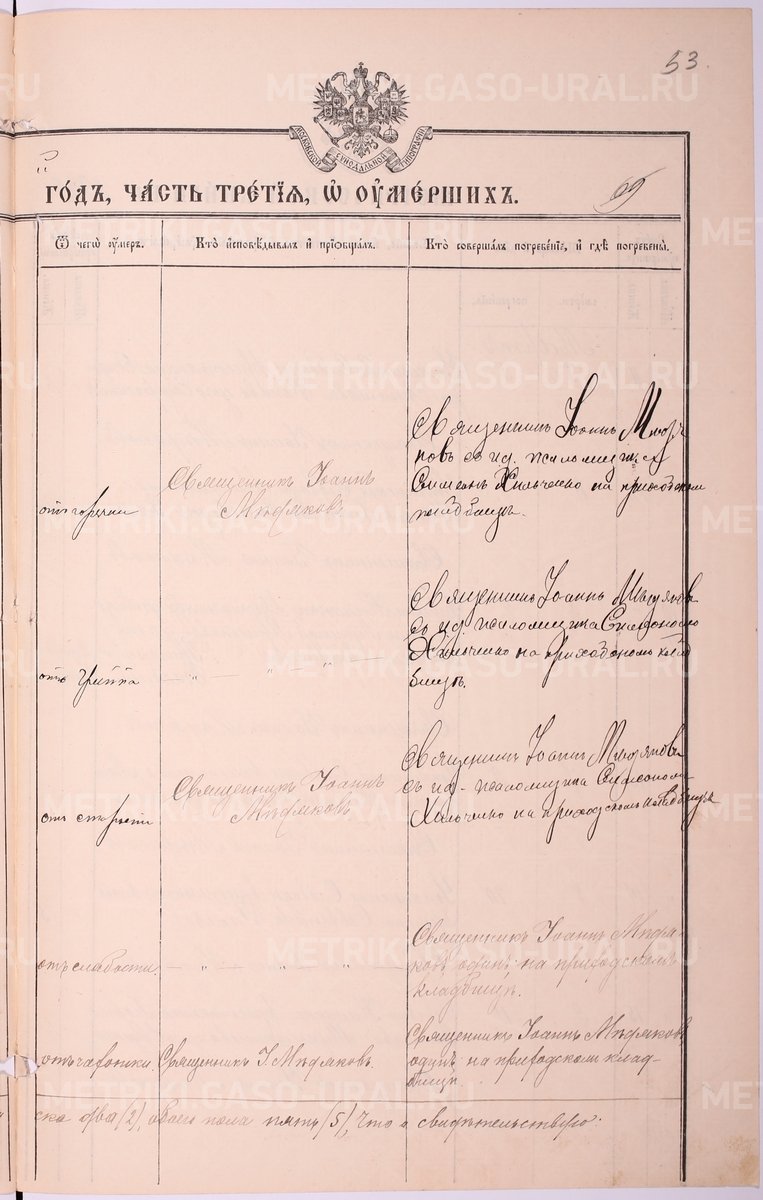 53.
МОСКОВСКОЙ СѴНОДАЛЬНОЙ ТИПОГРАФІИ
го́дъ, ча́сть тре́тїѧ, ѡ҆ оу҆ме́ршихъ.
69
Ѿ чегѡ̀ оу҆́меръ.
Кто̀ и҆сповѣ́дывалъ и҆ прїѡбща́лъ.
Кто̀ соверша́лъ погребе́нїе, и҆ гдѣ̀ погребены̀.
отъ горячки
Священникъ Іоаннъ
Мѣдяковъ
Священникъ Іоаннъ Мѣдя
ковъ съ ид. псаломщика
Хильченко на приходском
кладбищѣ.
отъ
— „ — „ „ —
Священникъ Іоаннъ Мѣдяковъ
съ ид. псаломщика Симеономъ
Хильченко на приходскомъ клад
бищѣ.
отъ старости
Священникъ Іоаннъ
Мѣдяковъ
Священникъ Іоаннъ Мѣдяковъ
съ ид. псаломщика Симеономъ
Хильченко на приходскомъ кладбищѣ
отъ слабости.
— „ — „ — „ —
Священникъ Іоаннъ Мѣдя-
ковъ одинъ на приходскомъ
кладбищѣ.
отъ чахотки
Священникъ І. Мѣдяковъ.
Священникъ Іоаннъ Мѣдяковъ
одинъ на приходскомъ клад-
бищѣ.
ска два (2), обоего пола пять (5), что и свидѣтельствую.
METRIKI.GASO-URAL.RU